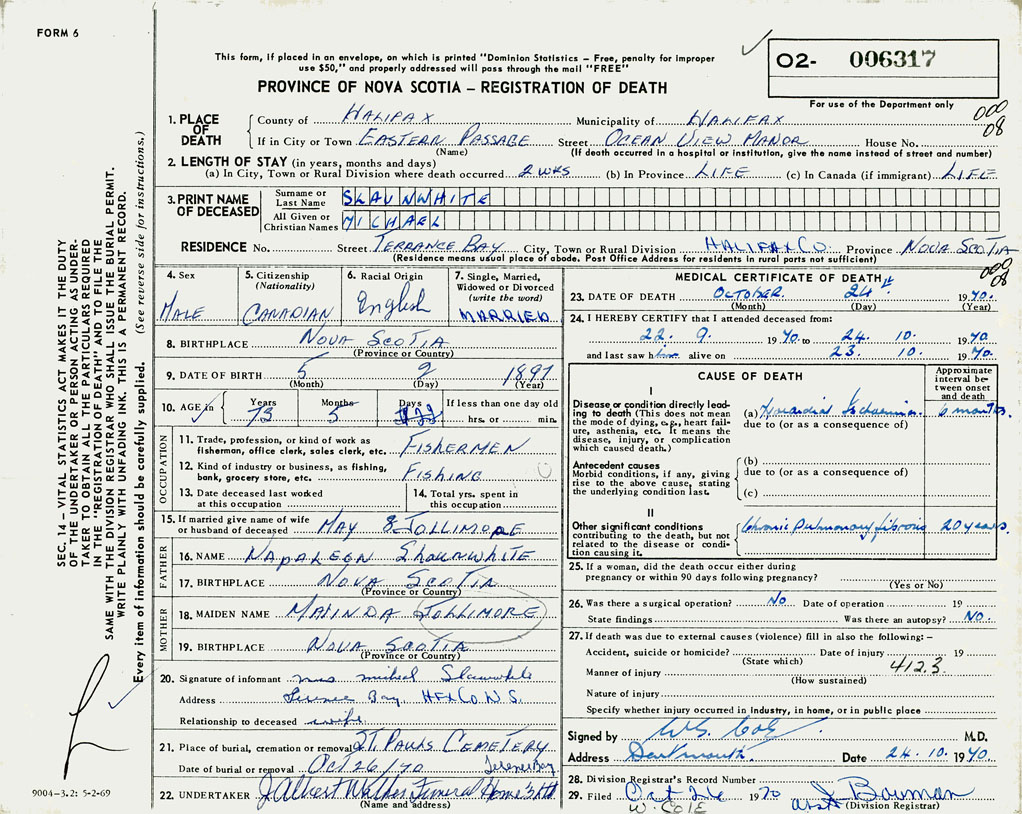 FORM 6
This form, if placed in an envelope, on which is printed "Dominion Statistics – Free, penalty for improper
use $50," and properly addressed will pass through the mail "FREE"
PROVINCE OF NOVA SCOTIA – REGISTRATION OF DEATH
02- 006317
For use of the Department only
000
08
1. PLACE OF DEATH
County of HALIFAX Municipality of HALIFAX
If in City or Town EASTERN PASSAGE Street OCEAN VIEW MANOR House No.
(Name) (If death occurred in a hospital or institution, give the name instead of street and number)
2. LENGTH OF STAY (in years, months and days)
(a) In City, Town or Rural Division where death occurred 2 WKS (b) In Province LIFE (c) In Canada (if immigrant) LIFE
3. PRINT NAME OF DECEASED
Surname or Last Name SLAUNWHITE
All Given or Christian Names MICHAEL
RESIDENCE No. Street TERRANCE BAY City, Town or Rural Division HALIFAX CO. Province NOVA SCOTIA
(Residence means usual place of abode. Post Office Address for residents in rural parts not sufficient)
000
08
4. Sex MALE
5. Citizenship (Nationality) CANADIAN
6. Racial Origin English
7. Single, Married, Widowed or Divorced (write the word) MARRIED
8. BIRTHPLACE NOVA SCOTIA
(Province or Country)
9. DATE OF BIRTH 5 9 1897
(Month) (Day) (Year)
10. AGE in Years 73 Months 5 Days 22 If less than one day old hrs. or min.
OCCUPATION
11. Trade, profession, or kind of work as
fisherman, office clerk, sales clerk, etc. FISHERMEN
12. Kind of industry or business, as fishing,
bank, grocery store, etc. FISHING
13. Date deceased last worked
at this occupation
14. Total yrs. spent in
this occupation
15. If married give name of wife
or husband of deceased MAY JOLLIMORE
FATHER
16. NAME NAPALEON SLAUNWHITE
17. BIRTHPLACE NOVA SCOTIA
(Province or Country)
MOTHER
18. MAIDEN NAME MALINDA JOLLIMORE
19. BIRTHPLACE NOVA SCOTIA
(Province or Country)
20. Signature of informant Mrs michael Slaunwhite
Address Terence Bay HFX Co N.S.
Relationship to deceased wife
21. Place of burial, cremation or removal ST. PAULS CEMETERY
Date of burial or removal OCT 26/70 Terence Bay
22. UNDERTAKER J Albert Walker Funeral Home
(Name and address)
MEDICAL CERTIFICATE OF DEATH
23. DATE OF DEATH OCTOBER 24th 1970.
(Month) (Day) (Year)
24. I HEREBY CERTIFY that I attended deceased from:
22. 9. 1970 to 24. 10. 1970.
and last saw him alive on 23. 10. 1970.
CAUSE OF DEATH
Approximate interval between onset and death
I
Disease or condition directly leading to death (This does not mean the mode of dying, e.g., heart failure, asthenia, etc. It means the disease, injury, or complication which caused death.)
(a) Myocardial Ischaemia. 6 months.
due to (or as a consequence of)
Antecedent causes
Morbid conditions, if any, giving rise to the above cause, stating the underlying condition last.
(b)
due to (or as a consequence of)
(c)
II
Other significant conditions
contributing to the death, but not related to the disease or condition causing it.
Chronic Pulmonary fibrosis 20 years.
25. If a woman, did the death occur either during
pregnancy or within 90 days following pregnancy?
(Yes or No)
26. Was there a surgical operation? NO Date of operation 19
State findings Was there an autopsy? NO.
27. If death was due to external causes (violence) fill in also the following: –
Accident, suicide or homicide? Date of injury 19
(State which)
Manner of injury 412.3
(How sustained)
Nature of injury
Specify whether injury occurred in industry, in home, or in public place
Signed by W.G. Cole M.D.
Address Dartmouth. Date 24.10.1970
28. Division Registrar's Record Number
29. Filed Oct 26 1970 J Bowman
W. COLE (Division Registrar)
SEC. 14 – VITAL STATISTICS ACT MAKES IT THE DUTY
OF THE UNDERTAKER OR PERSON ACTING AS UNDER-
TAKER TO OBTAIN ALL THE PARTICULARS REQUIRED
IN THE "REGISTRATION OF DEATH" AND TO FILE THE
SAME WITH THE DIVISION REGISTRAR WHO SHALL ISSUE THE BURIAL PERMIT.
WRITE PLAINLY WITH UNFADING INK. THIS IS A PERMANENT RECORD.
Every item of information should be carefully supplied. (See reverse side for instructions.)
9004-3.2: 5-2-69